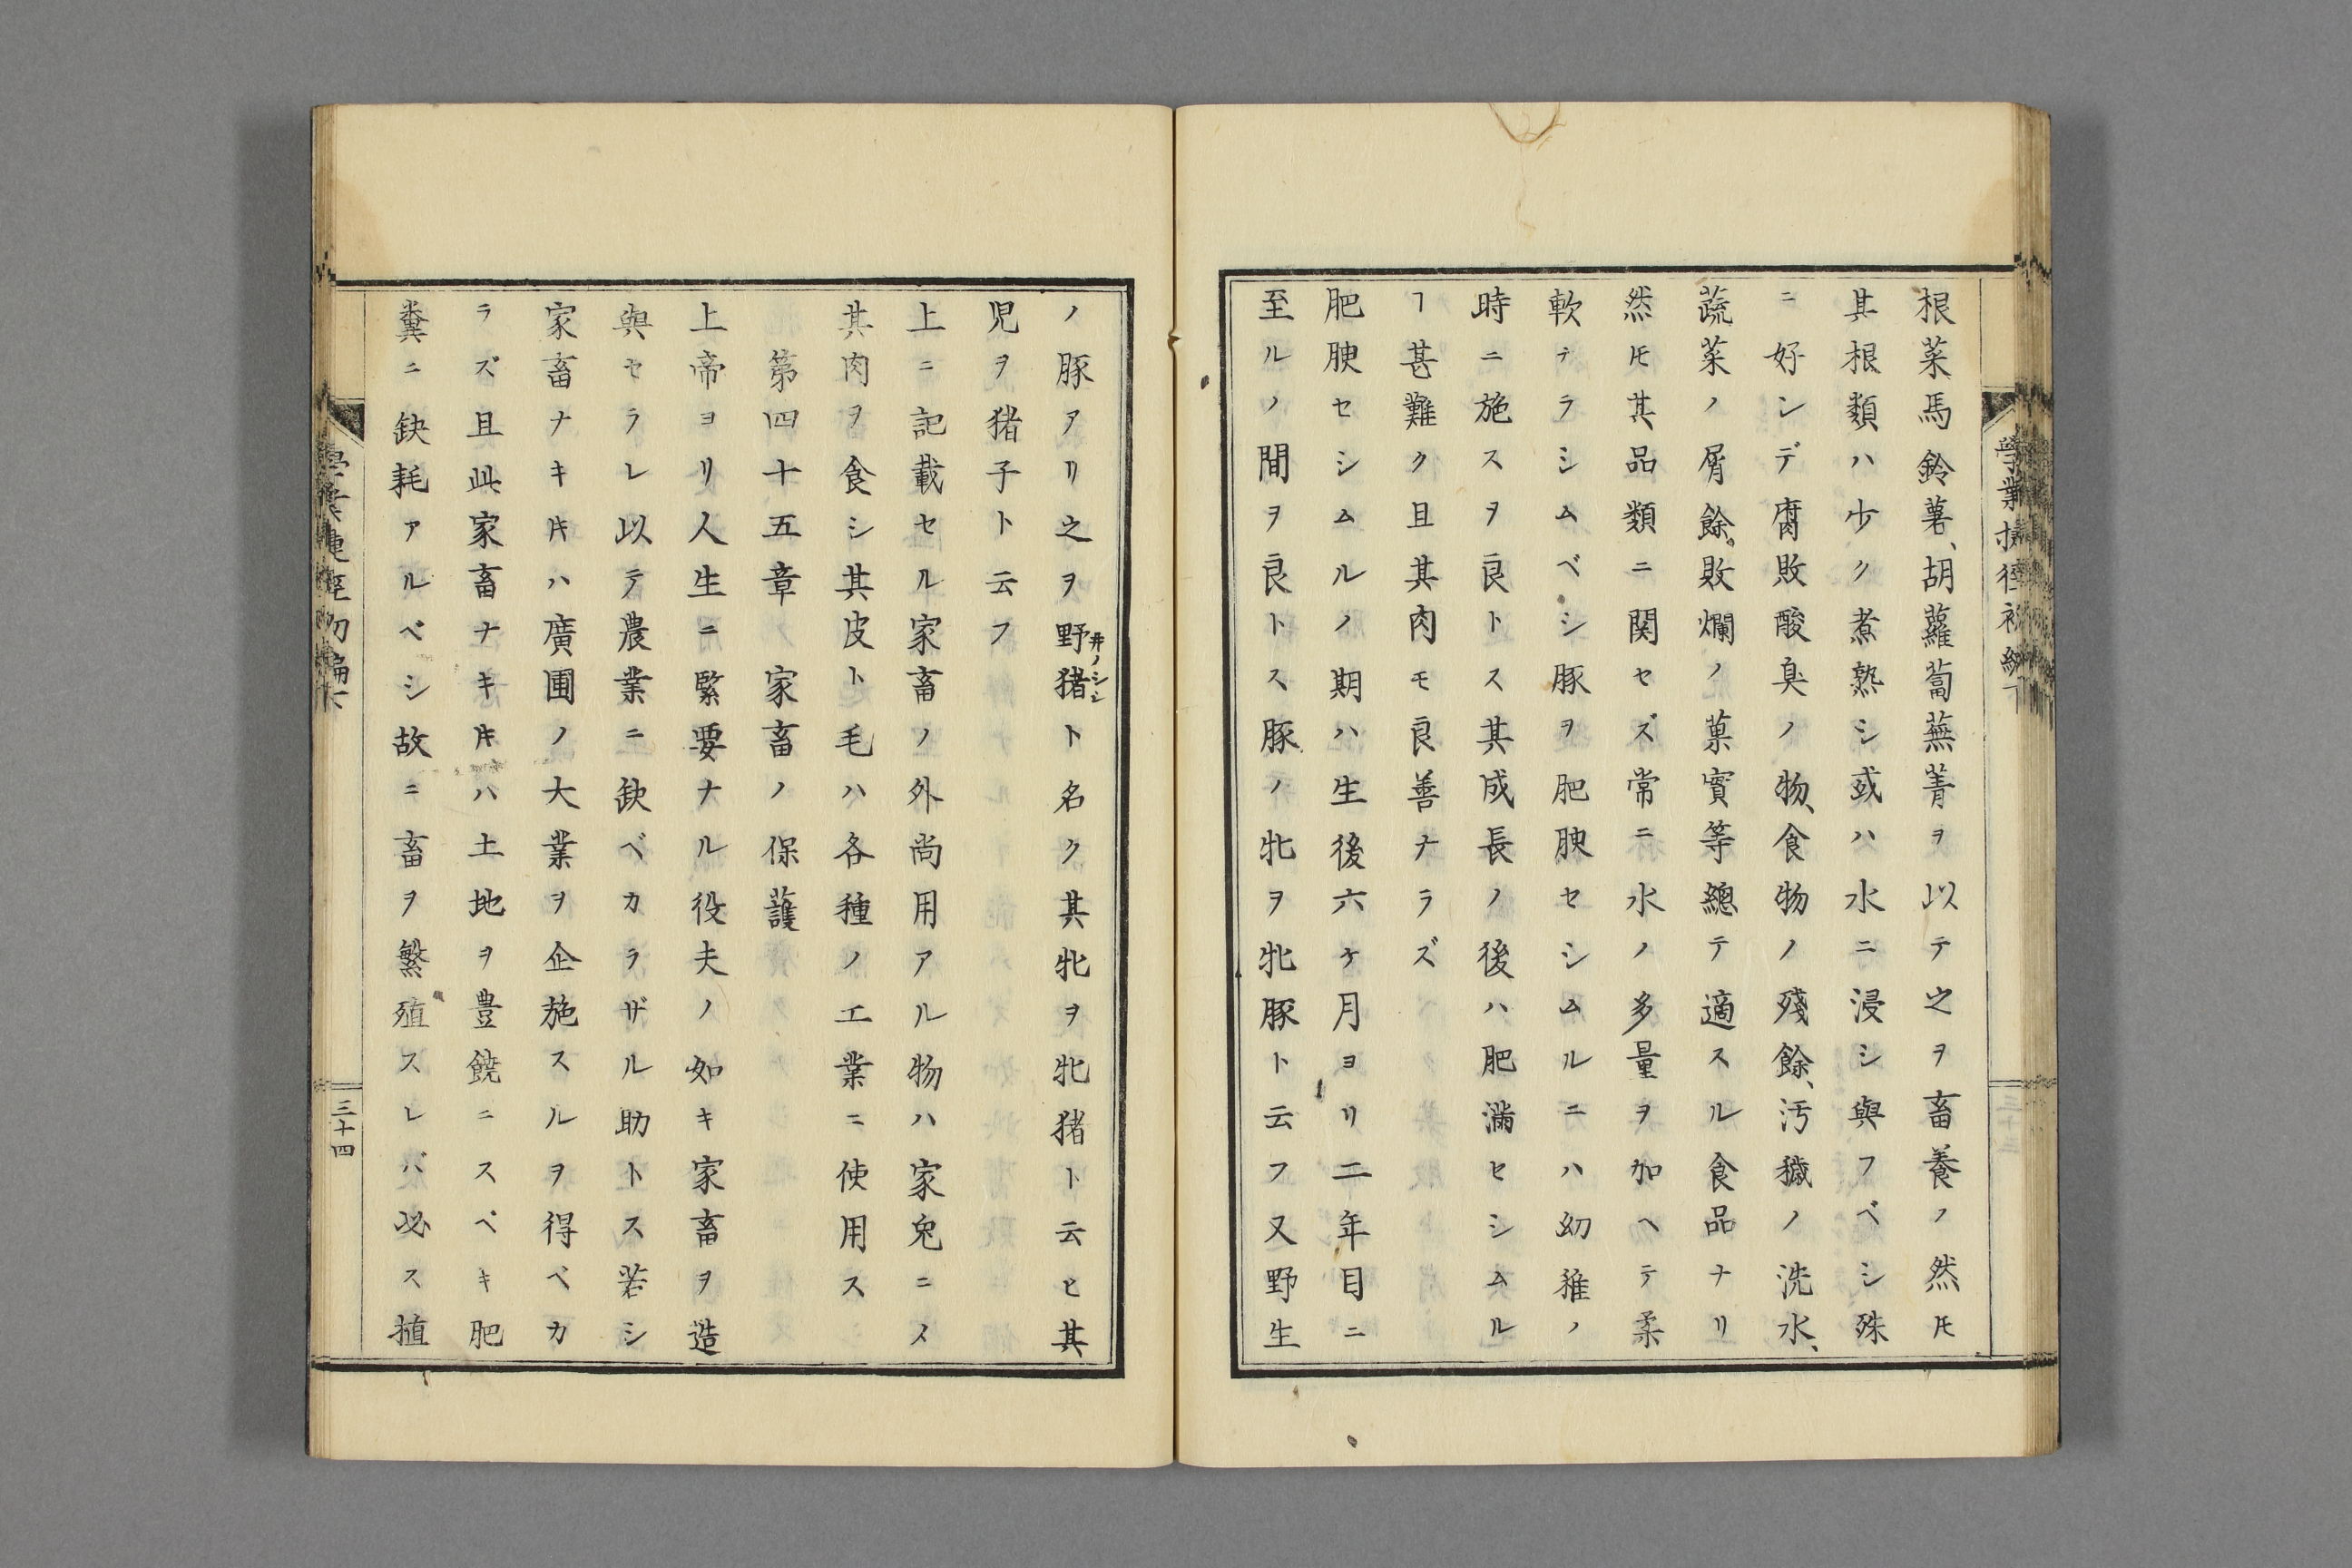 根菜馬鈴薯、胡蘿蔔蕪菁ヲ以テ之ヲ畜養ノ然𪜈
其根類ハ少ク煮熟シ或ハ水ニ浸シ與フベシ殊
ニ好ンデ腐敗酸臭ノ物、食物ノ殘餘、汚穢ノ洗水、
蔬菜ノ屑餘、敗爛ノ菓實等總テ適スル食品ナリ
然𪜈其品類ニ関セズ常ニ水ノ多量ヲ加ヘテ柔
軟ナラシムベシ豚ヲ肥腴セシムルニハ幼稚ノ
時ニ施スヲ良トス其成長ノ後ハ肥滿セシムル
ヿ甚難ク且其肉モ良善ナラズ
肥腴セシムルノ期ハ生後六ケ月ヨリ二年目ニ
至ルノ間ヲ良トス豚ノ牝ヲ牝豚ト云フ又野生
三十四
ノ豚アリ之ヲ野猪ト名ク其牝ヲ牝猪ト云ヒ其
井ノシシ
児ヲ猪子ト云フ
上ニ記載セル家畜ノ外尚用アル物ハ家兎ニメ
其肉ヲ食シ其皮ト毛ハ各種ノ工業ニ使用ス
第四十五章　家畜ノ保護
上帝ヨリ人生ニ緊要ナル役夫ノ如キ家畜ヲ造
與セラレ以テ農業ニ欽ベカラザル助トス若シ
家畜ナキ𪜈ハ廣圃ノ大業ヲ企施スルヲ得ベカ
ラズ且此家畜ナキ𪜈ハ土地ヲ豊饒ニスベキ肥
糞ニ缺耗アルベシ故ニ畜ヲ繁殖スレバ必ス植